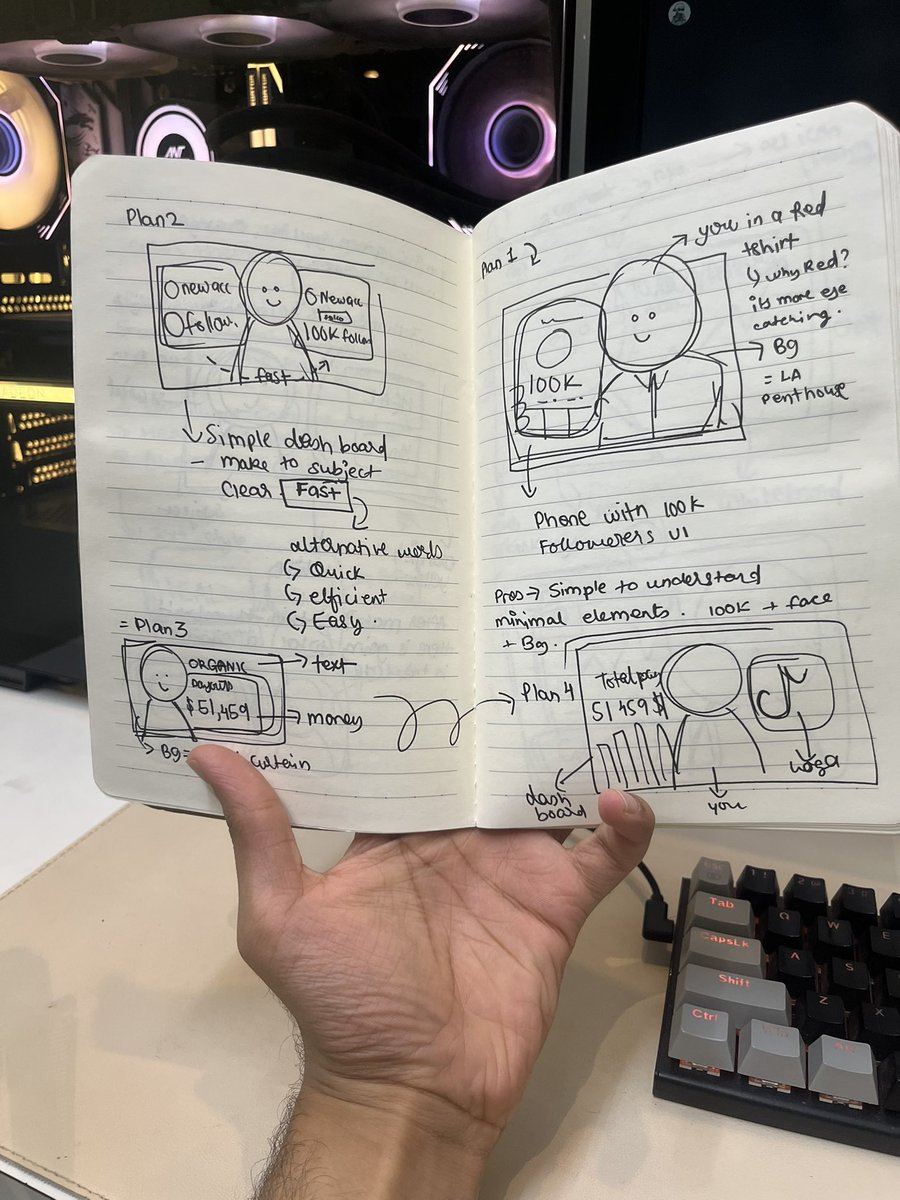 Plan2
O new acc
O follow.
O New acc
100K follow
fast
Simple dash board
– make to subject
Clear. Fast
alternative words
Quick
efficient
Easy.
= Plan3
ORGANIC
text
$51,459
money
Bg=
curtain
Plan 1
you in a Red
tshirt
why Red?
its more eye
catching.
Bg
= LA
penthouse
100K
Phone with 100K
Followerers UI
Pros → Simple to understand
minimal elements. 100K + face
+ Bg.
Plan 4
Total pay
51459$
dash
board
you
Tab
CapsLk
Shift
Ctrl
Q
W
E
A
S
Z
X